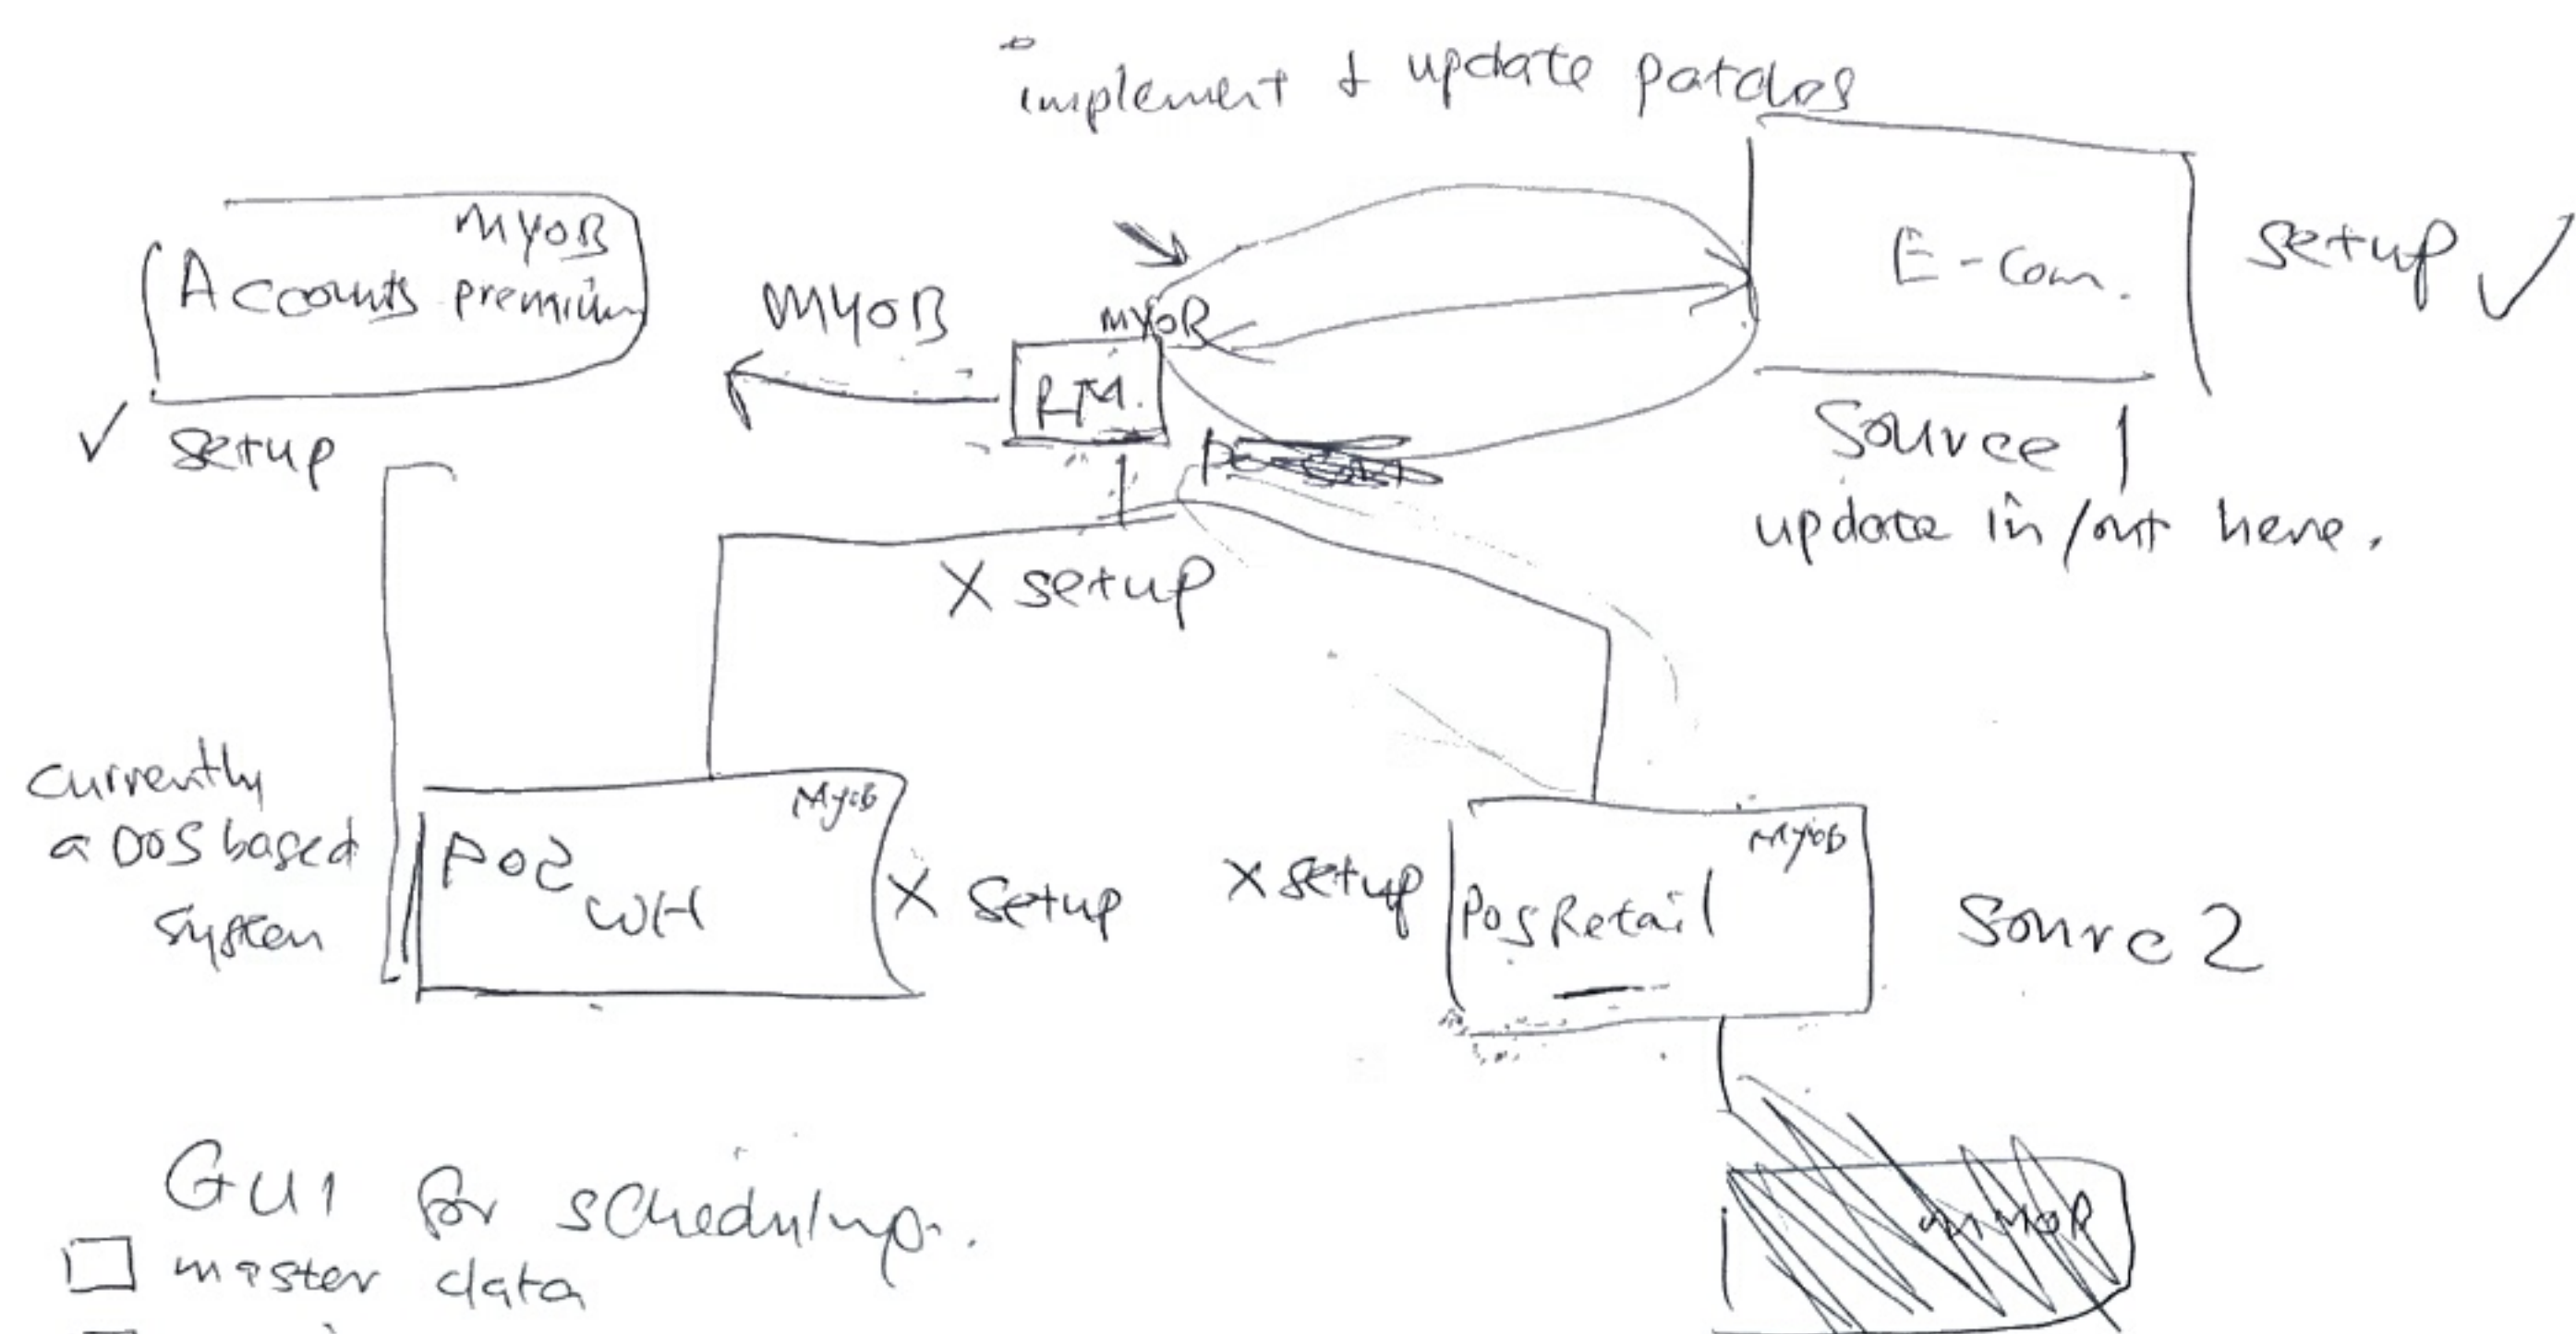 implement & update patches
MYOB
Accounts premium
✓ setup
MYOB
MYOB
RM.
E-Com.
setup ✓
Source 1
update in/out here.
X setup
currently
a DOS based
system
MYOB
POS
WH
X setup
X setup
MYOB
POS Retail
Source 2
MYOB
GUI for scheduling.
master data